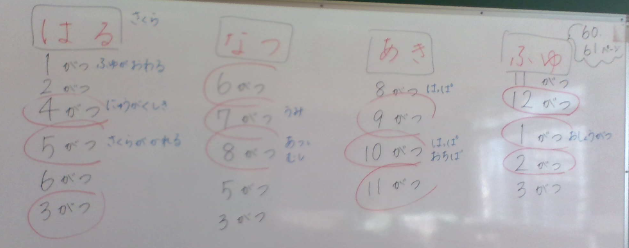 はる
さくら
1がつ ふゆがおわる
2がつ
4がつ にゅうがくしき
5がつ
6がつ
3がつ
なつ
6がつ
7がつ うみ
8がつ あつい
5がつ
3がつ
あき
8がつ
9がつ
10がつ
おちば
11がつ
ふゆ
60.
61ページ
11がつ
12がつ
1がつ おしょうがつ
2がつ
3がつ